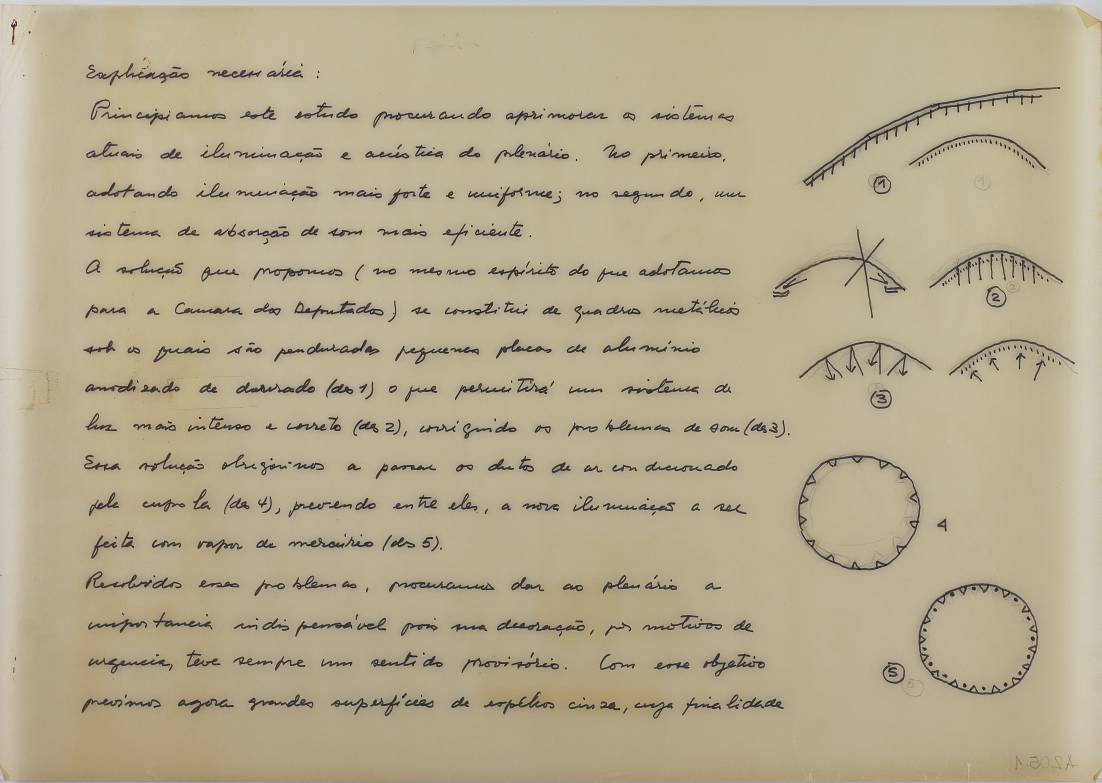 Explicação necessária:
Principiamos este estudo procurando aprimorar os sistemas
atuais de iluminação e acústica do plenário. No primeiro,
adotando iluminação mais forte e uniforme; no segundo, um
sistema de absorção de som mais eficiente.
A solução que propomos (no mesmo espírito do que adotamos
para a Camara dos Deputados) se constitui de quadros metálicos
sob os quais são penduradas pequenas placas de alumínio
anodizado de dourado (des 1) o que permitirá um sistema de
luz mais intenso e correto (des 2), corrigindo os problemas de som (des 3).
Essa solução obrigou-nos a passar os dutos de ar condicionado
pela cupola (des 4), prevendo entre eles, a nova iluminação a ser
feita com vapor de mercúrio (des 5).
Resolvidos esses problemas, procuramos dar ao plenário a
importancia indispensável pois sua decoração, por motivos de
urgencia, teve sempre um sentido provisório. Com esse objetivo
previmos agora grandes superfícies de espêlhos cinza, cuja finalidade
1
1
2
2
3
4
5
5